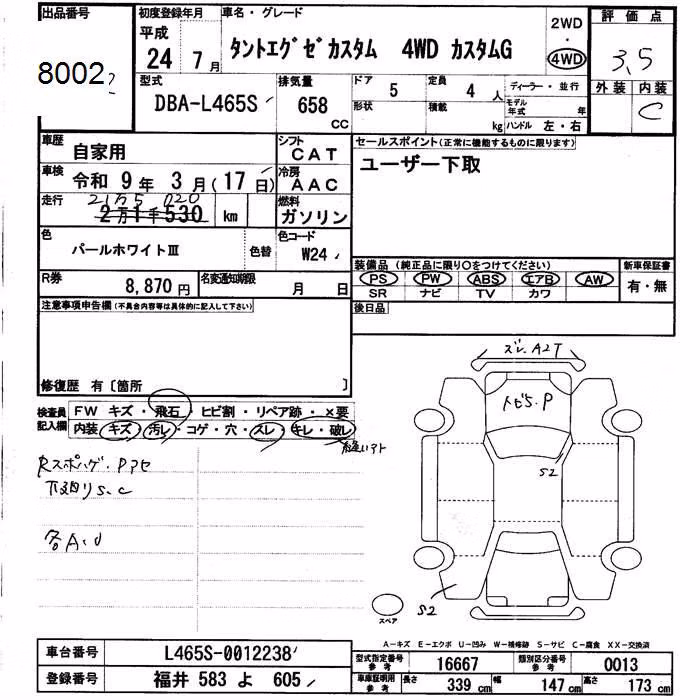 出品番号
8002
初度登録年月
平成
24 7月
車名・グレード
タントエグゼカスタム 4WD カスタムG
2WD
・
4WD
評価点
3.5
外装 内装
C
型式
DBA-L465S
排気量
658
CC
ドア 5
形状
定員 4 人
積載 kg
ディーラー・並行
モデル年式 年
ハンドル 左・右
車歴
自家用
シフト
CAT
車検
令和 9年 3月(17日)
冷房
AAC
走行
2万1千530 km
燃料
ガソリン
セールスポイント(正常に機能するものに限ります)
ユーザー下取
色
パールホワイトIII
色替
色コード
W24
R券
8,870円
名変通知期限
月 日
装備品(純正品に限り○をつけてください)
PS PW ABS エアB AW
SR ナビ TV カワ
新車保証書
有・無
後日品
注意事項申告欄(不具合内容等は具体的に記入して下さい)
修復歴 有〔箇所 〕
検査員記入欄
FW キズ・飛石・ヒビ割・リペア跡・×要
内装 キズ・汚レ・コゲ・穴・スレ・キレ・破レ
ズレ.A2T
トビS.P
S2
下廻りS.C
S2
スペア
A-キズ E-エクボ U-凹み W-補修跡 S-サビ C-腐食 XX-交換済
車台番号
L465S-0012238
登録番号
福井 583 よ 605
型式指定番号参考
16667
類別区分番号参考
0013
車庫証明用参考
長さ 339 cm 幅 147 cm 高さ 173 cm